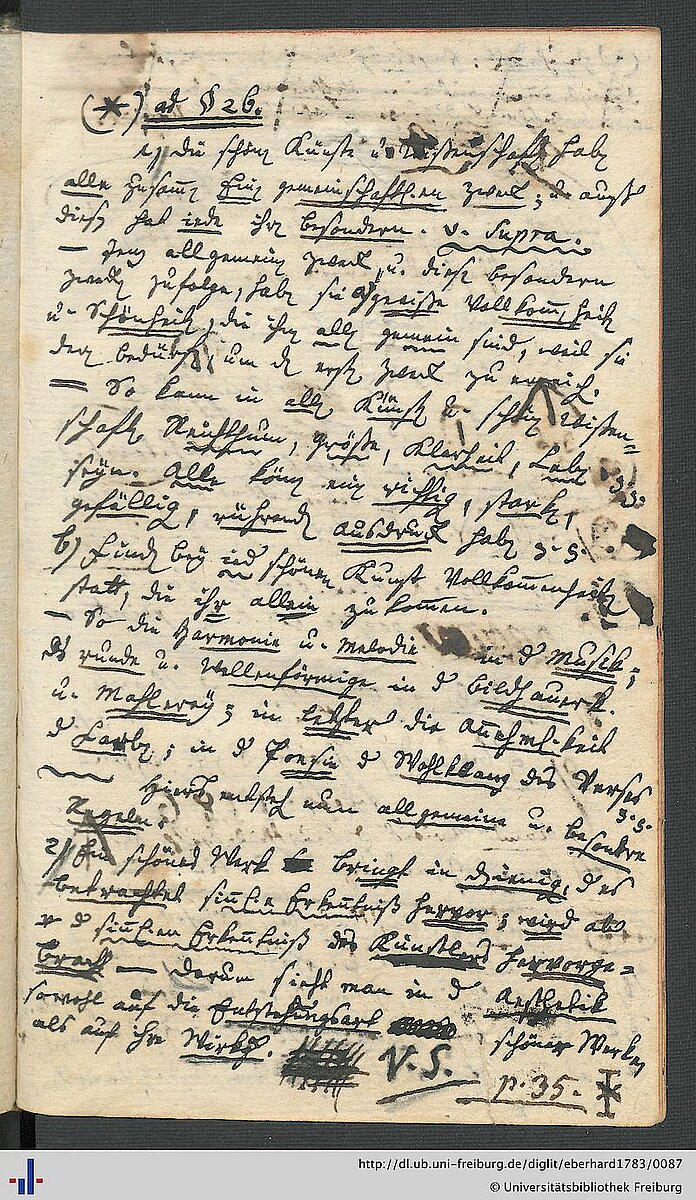 (*) ad § 26.
1) die schönen Künste u. Wissenschaft. haben
alle zusamen Einen gemeinschaftl.en Zweck; u. ausser
diesem hat iede ihren besondern. v. supra.
— Jenem allgemeinen Zweck, u. diesem besondern
Zweck zufolge, haben sie gewisse Vollkommenheiten
u. Schönheiten, die ihnen allen gemein sind, weil sie
deren bedürfen, um den ersten Zweck zu erreich.
= So kann in allen Künsten u. schönen Wissen=
schaften Reichthum, Grösse, Klarheit, Leben
seyn. Alle können einen richtigen, starken,
gefälligen, rührenden Ausdruck haben z. B.
b) Finden bey ied. schönen Kunst Vollkommenheiten
statt, die ihr allein zukommen.
— So die Harmonie u. Melodie in d Musik;
das runde u. Wellenförmige in d Bildhauerk.
u. Mahlerey; in letzter die Annehml.keit
d Farben; in d Poesie d Wohlklang des Verses
z. B.
Hieraus entstehen nun allgemeine u. besondre
Regeln.
2) Ein schönes Werk bringt in demienigen, d es
betrachtet sinnliche Erkenntniß hervor; wird aber
v d sinnlichen Erkenntniß des Künstlers hervorge=
bracht — darum sieht man in d Aesthetik
sowohl auf die Entstehungsart schöner Werke
als auf ihre Wirkung. V. S.
p. 35. *
http://dl.ub.uni-freiburg.de/diglit/eberhard1783/0087
© Universitätsbibliothek Freiburg